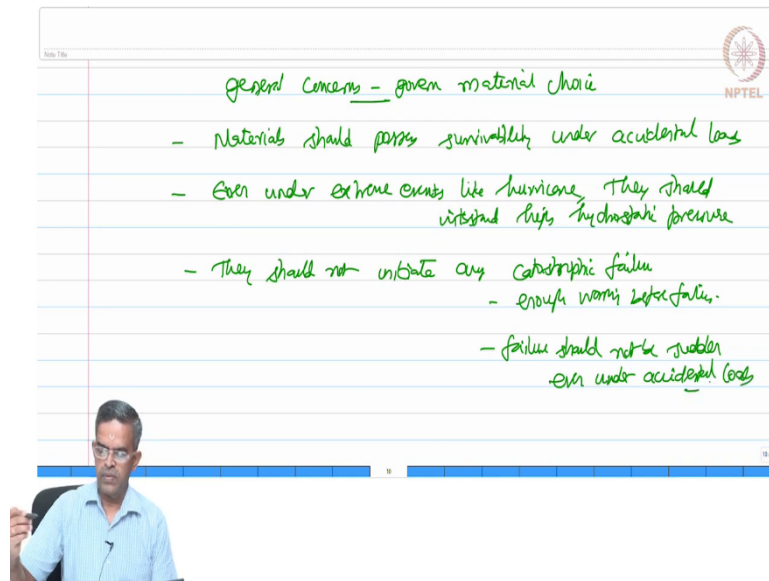 Note Title
NPTEL
general concerns - govern material choice
- Materials should posses survivability under accidental loads
- Even under extreme events like hurricane, They should
withstand high hydrostatic pressure
- They should not initiate any catastrophic failure
- enough warning before failure.
- failure should not be sudden
even under accidental loads
10